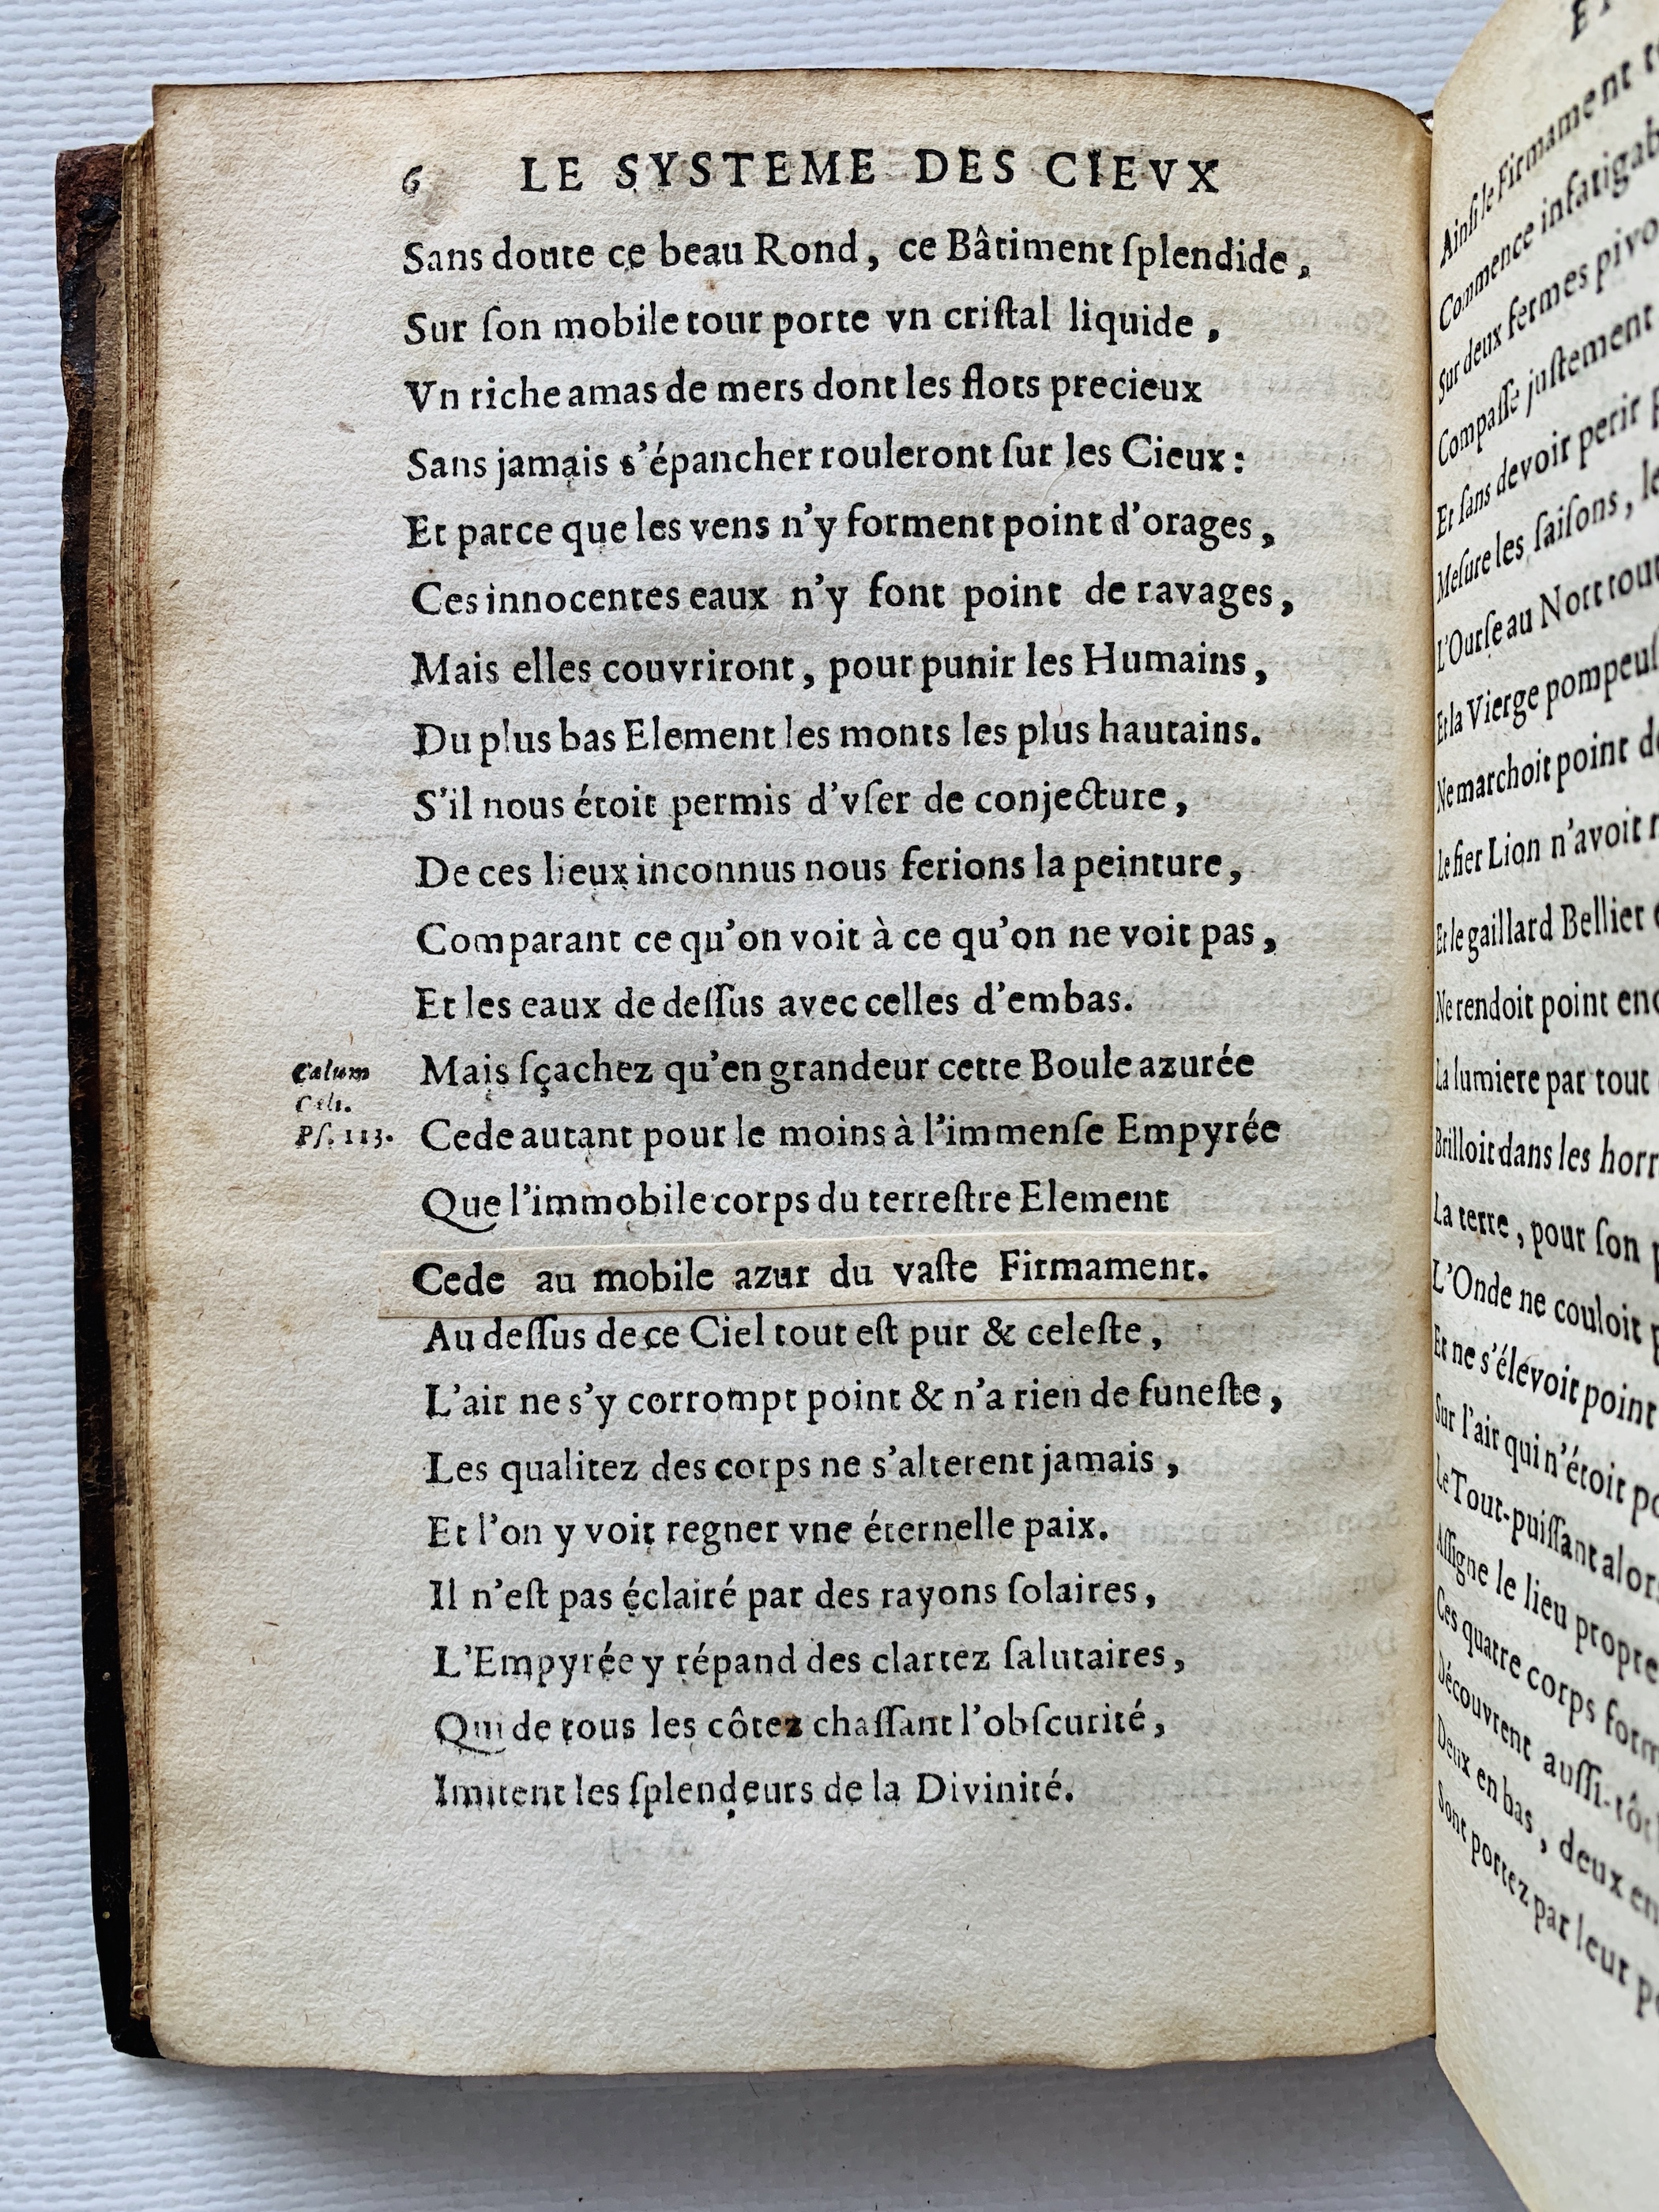 6 LE SYSTEME DES CIEVX
Sans doute ce beau Rond, ce Bâtiment ſplendide,
Sur ſon mobile tour porte vn criſtal liquide,
Vn riche amas de mers dont les flots precieux
Sans jamais s'épancher rouleront ſur les Cieux:
Et parce que les vens n'y forment point d'orages,
Ces innocentes eaux n'y font point de ravages,
Mais elles couvriront, pour punir les Humains,
Du plus bas Element les monts les plus hautains.
S'il nous étoit permis d'vſer de conjecture,
De ces lieux inconnus nous ferions la peinture,
Comparant ce qu'on voit à ce qu'on ne voit pas,
Et les eaux de deſſus avec celles d'embas.
Cælum
Cæli.
Pſ. 113.
Mais ſçachez qu'en grandeur cette Boule azurée
Cede autant pour le moins à l'immenſe Empyrée
Que l'immobile corps du terreſtre Element
Cede au mobile azur du vaſte Firmament.
Au deſſus de ce Ciel tout eſt pur & celeſte,
L'air ne s'y corrompt point & n'a rien de funeſte,
Les qualitez des corps ne s'alterent jamais,
Et l'on y voit regner vne éternelle paix.
Il n'eſt pas éclairé par des rayons ſolaires,
L'Empyrée y répand des clartez ſalutaires,
Qui de tous les côtez chaſſant l'obſcurité,
Imitent les ſplendeurs de la Divinité.
Ainſi le Firmament
Commence
Sur deux fermes
Compaſſe juſtement
Et ſans devoir perir
Meſure les ſaiſons,
L'Ourſe au Nort
Et la Vierge
Ne marchoit point
Le fier Lion n'avoit
Et le gaillard Bellier
Ne rendoit point
La lumiere par tout
Brilloit dans les
La terre, pour ſon
L'Onde ne couloit
Et ne s'élevoit point
Sur l'air qui n'étoit
Le Tout-puiſſant
Aſſigne le lieu propre
Ces quatre corps
Découvrent auſſi-tôt
Deux en bas, deux
Sont portez par leur